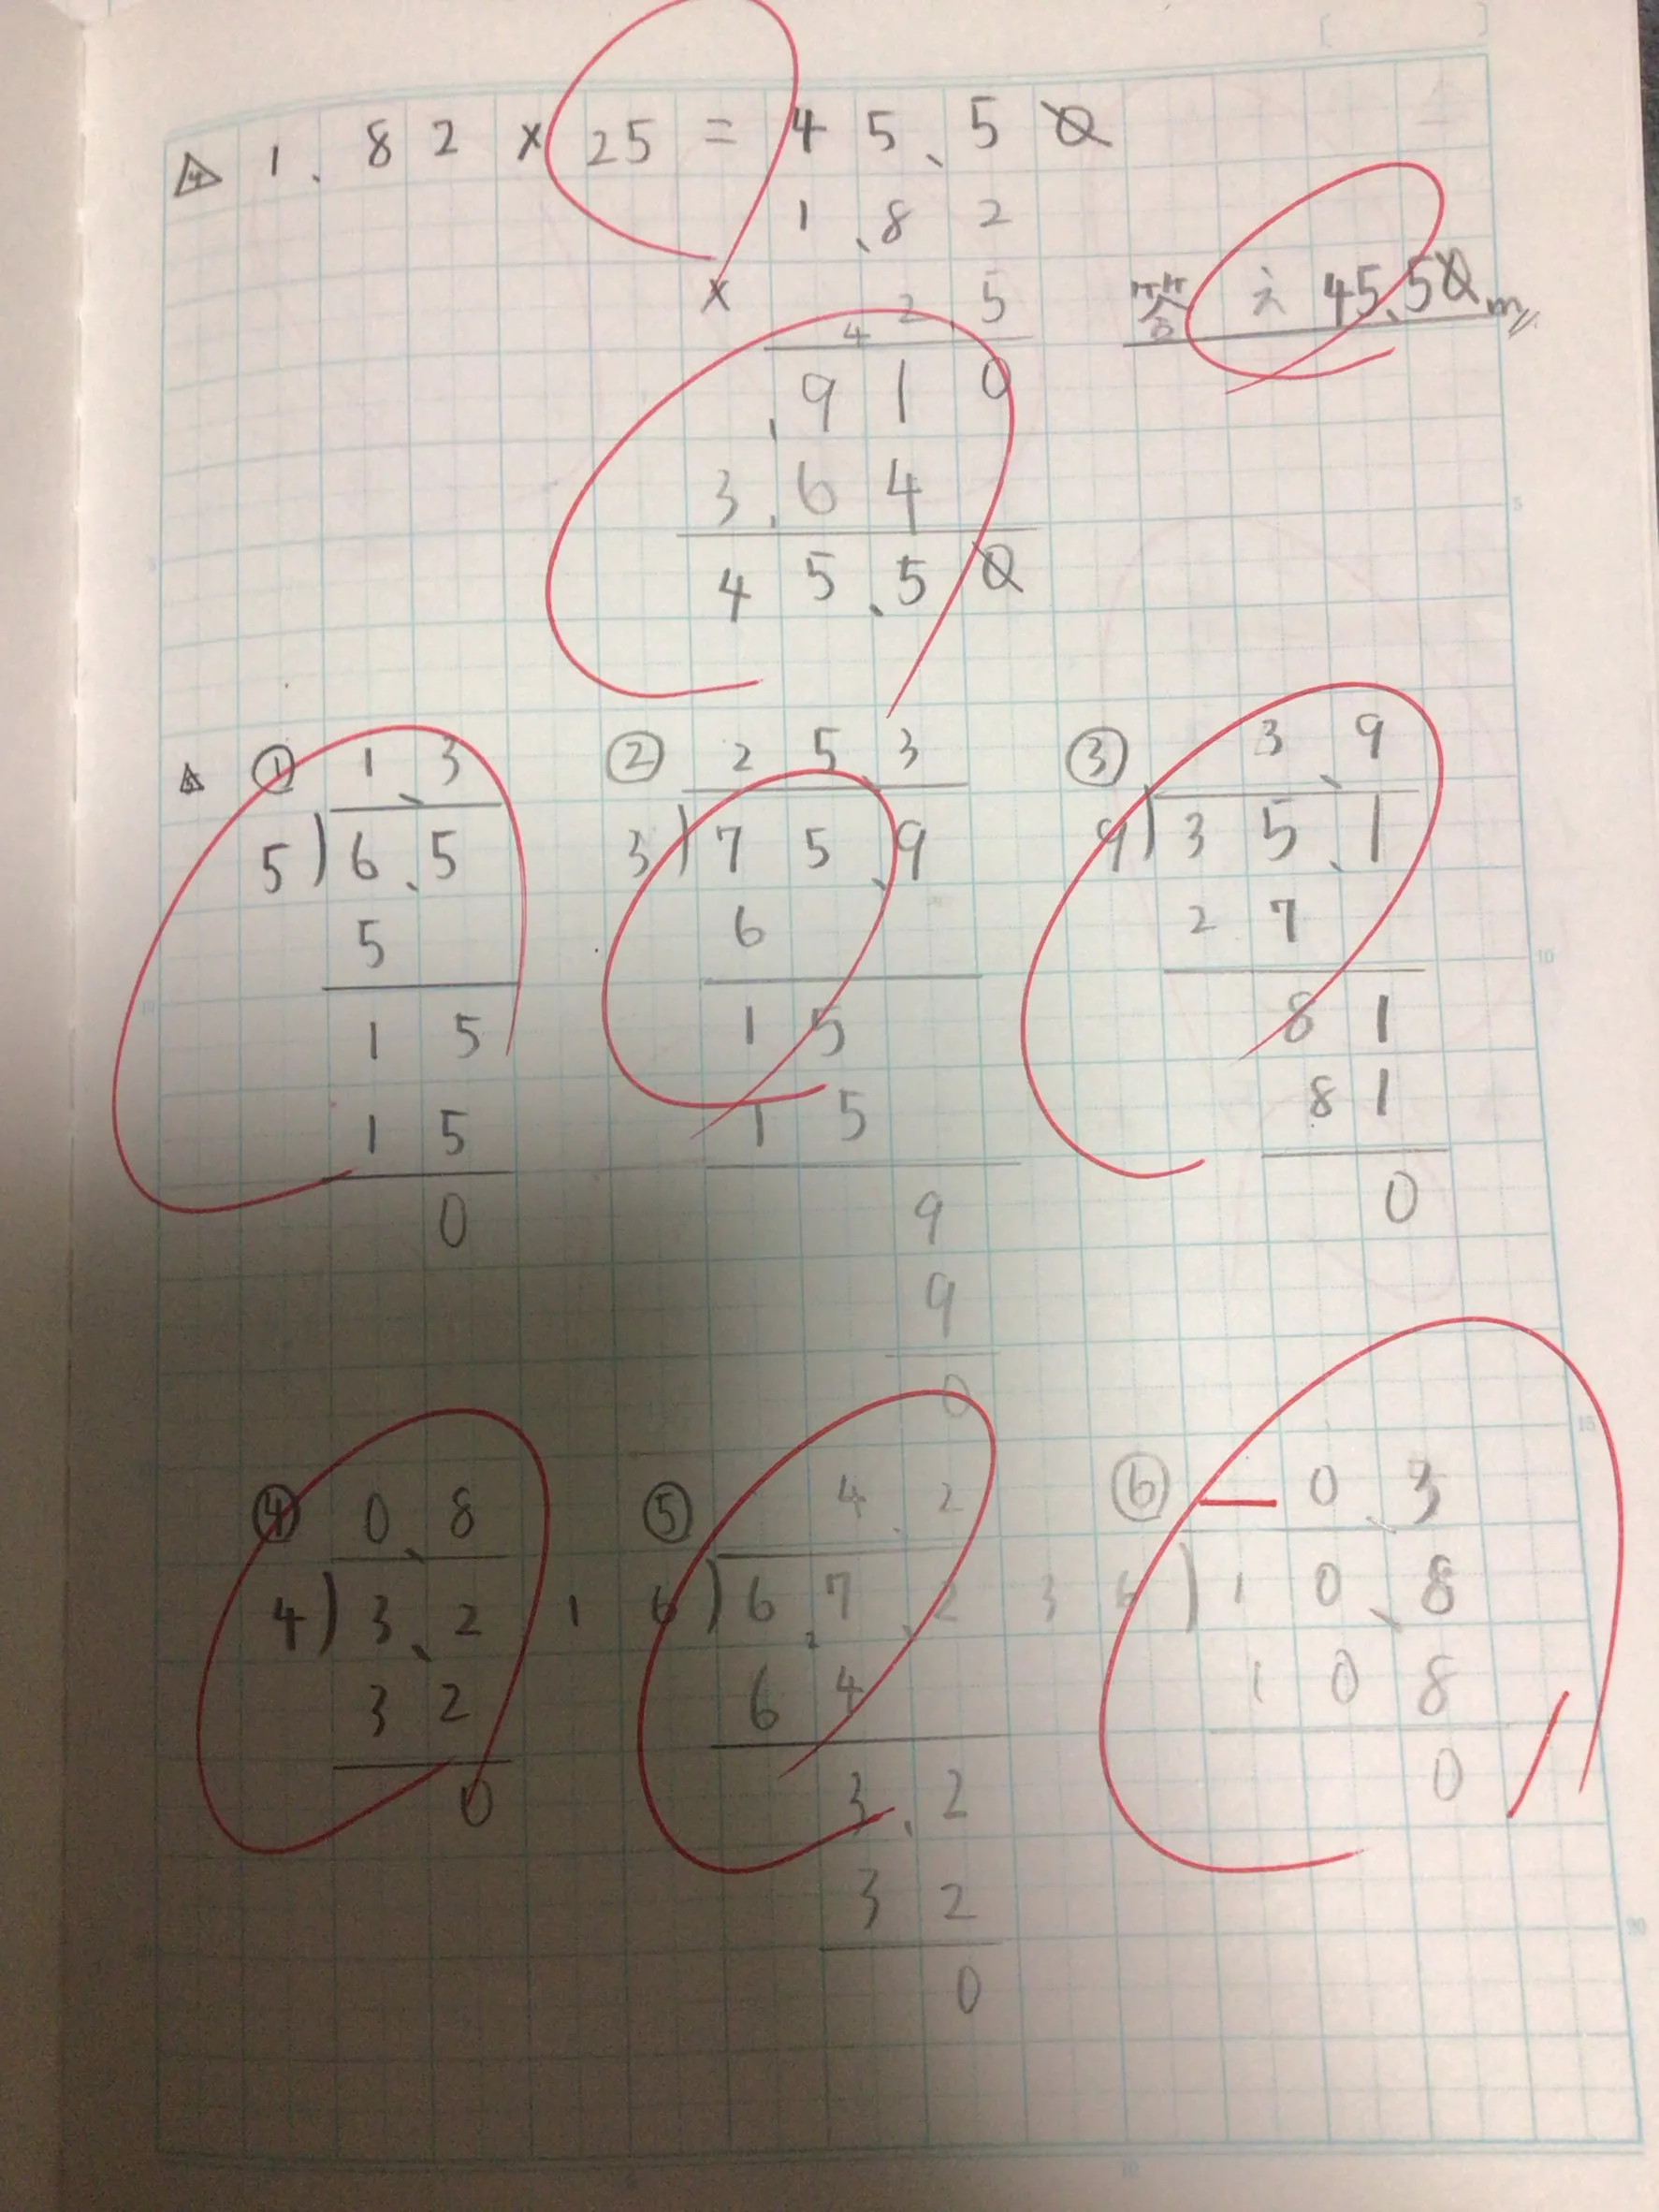 4 1.82 × 25 = 45.50
1.82
× 25
4
910
3.64
45.50
答え 45.50m
① 1.3
5)6.5
5
15
15
0
② 25.3
3)75.9
6
15
15
9
9
0
③ 3.9
9)35.1
27
81
81
0
④ 0.8
4)3.2
32
0
⑤ 4.2
16)67.2
64
3.2
32
0
⑥ 0.3
36)10.8
108
0
5
10
15
20